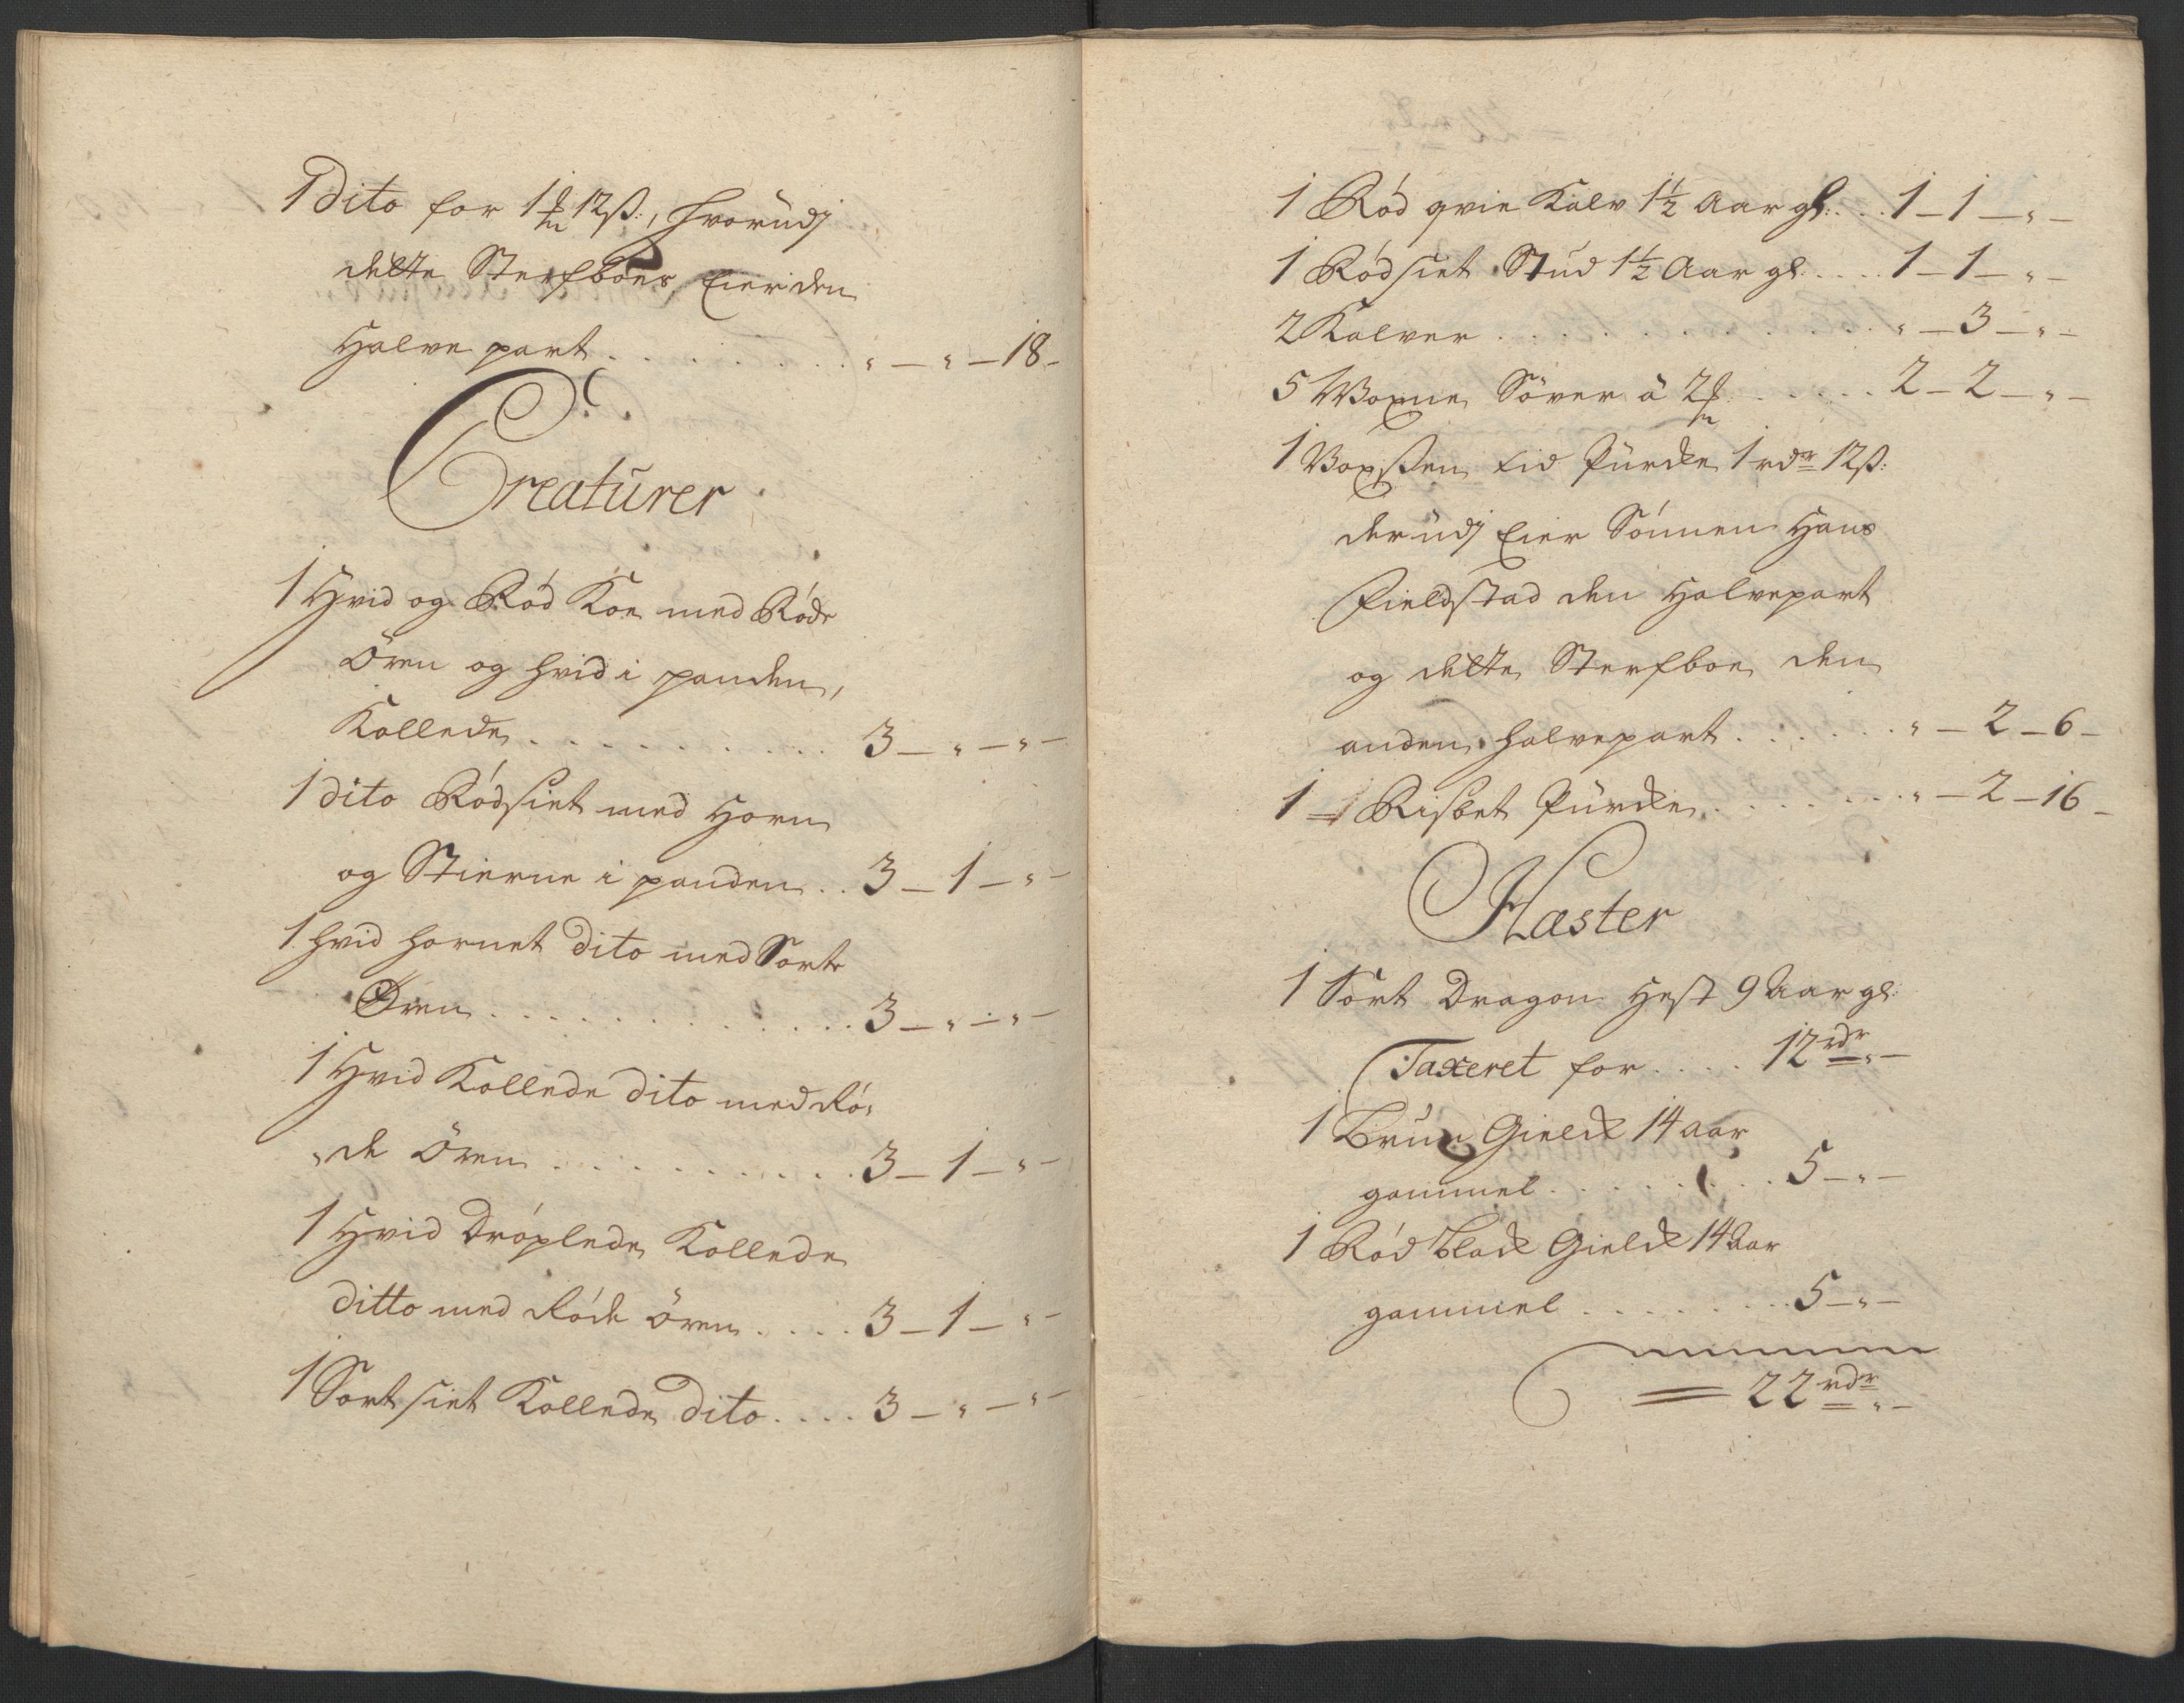 1 Dito for 1 ℳ 12 ß:, hvorudj
dette Sterfboes Eier den
Halve part . . . . . . . . „ — „ — 18 -
Creaturer
1 Hvid og Rød Koe med Røde
Øren og hvid i panden,
Kollede . . . . . . . . . 3 — „ — „ —
1 dito Rødsiet med Horn
og Stierne i panden . . 3 — 1 — „ —
1 hvid hornet Dito med Sorte
Øren . . . . . . . . . . . . 3 — „ — „ —
1 Hvid Kollede dito med Rø„
„de Øren . . . . . . . . . . 3 — 1 — „ —
1 Hvid Drøplede Kollede
ditto med Røde Øren . . . . 3 — 1 — „ —
1 Sort siet Kollede Dito . . . . 3 — „ — „ —
1 Rød qvie Kalv 1½ Aar gl: . . . 1 — 1 — „ —
1 Rødsiet Stud 1½ Aar gl . . . . 1 — 1 — „ —
2 Kalver . . . . . . . . . . . . „ — 3 — „ -
5 Woxne Søver â 2 ℳ . . . . . . 2 — 2 — „ —
1 Voxsen Eid Purcke 1 rdr 12 ß:
derudj Eier Sønnen Hans
Fieldstad den Halvepart
og dette Sterfboe den
anden halvepart . . . . . . „ — 2 — 6 -
1 Risbet Purcke . . . . . . . „ — 2 — 16 -
Hæster
1 Sort Dragon Hest 9 Aar gl:
Taxeret for . . . . 12 rdr „ —
1 Brun Gielck 14 aar
gammel . . . . . . . . 5 — „ —
1 Rød black Gielck 14 Aar
gammel . . . . . . . 5 — „ —
= 22 rdr „ —